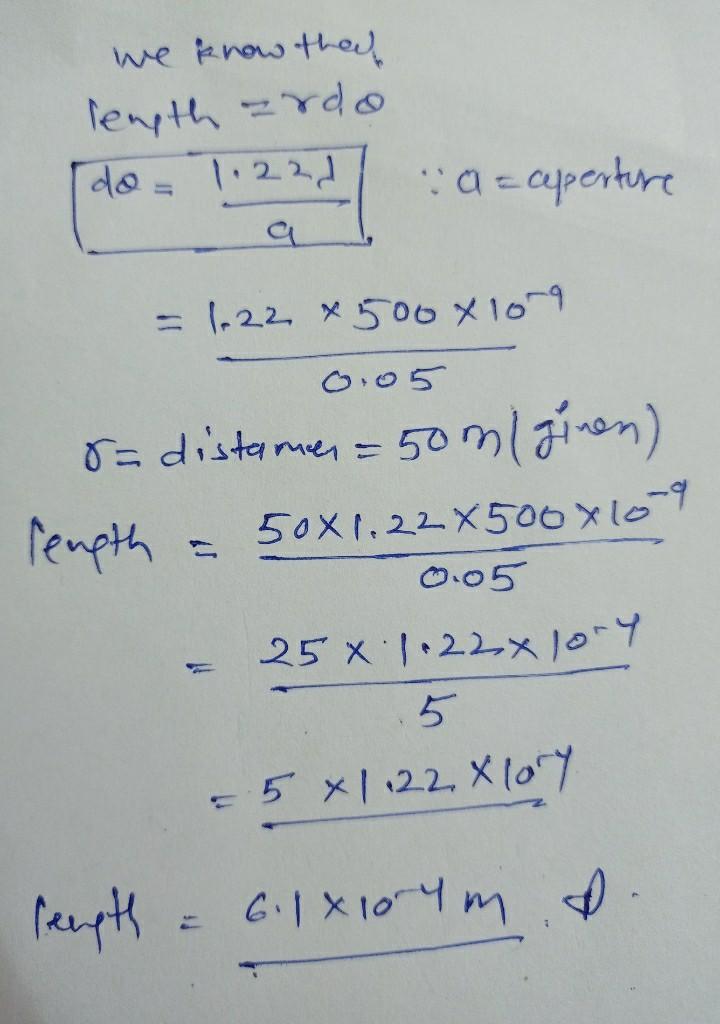 we know that,
length = rdθ
dθ = 1.22λ / a ∵ a = aperture
= 1.22 × 500 × 10⁻⁹ / 0.05
r = distance = 50 m (given)
length = 50×1.22×500×10⁻⁹ / 0.05
= 25 × 1.22 × 10⁻⁴ / 5
= 5 × 1.22 × 10⁻⁴
length = 6.1 × 10⁻⁴ m.